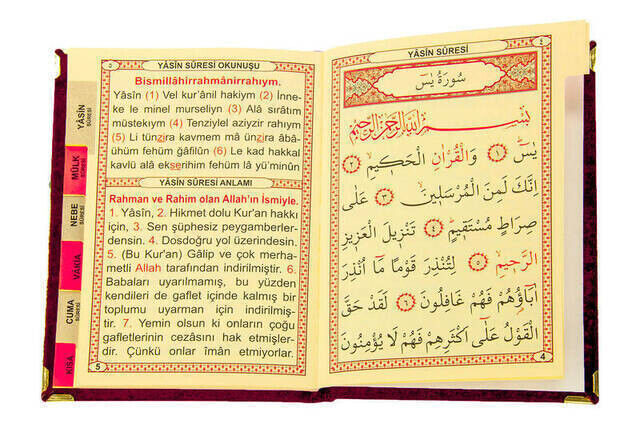 YÂSİN SÛRESİ
MÜLK SÛRESİ
NEBE SÛRESİ
VÂKIA
CUMA SÛRESİ
KISA
٥
YÂSÎN SÛRESİ OKUNUŞU
Bismillâhirrahmânirrahıym.
Yâsîn (1) Vel kur'ânil hakiym (2) İnne-
ke le minel murseliyn (3) Alâ sırâtım
müstekıym (4) Tenziylel aziyzir rahıym
(5) Li tünzira kavmem mâ ünzira âbâ-
ühüm fehüm ğafilûn (6) Le kad hakkal
kavlü alâ ekserihim fehüm lâ yü'minûn
YÂSÎN SÛRESİ ANLAMI
Rahman ve Rahim olan Allah'ın İsmiyle.
1. Yâsîn, 2. Hikmet dolu Kur'an hakkı
için, 3. Sen şüphesiz peygamberler-
densin. 4. Dosdoğru yol üzerindesin.
5. (Bu Kur'an) Gâlip ve çok merha-
metli Allah tarafından indirilmiştir. 6.
Babaları uyarılmamış, bu yüzden
kendileri de gaflet içinde kalmış bir
toplumu uyarman için indirilmiş-
tir. 7. Yemin olsun ki onların çoğu
gafletlerinin cezasını hak etmişler-
dir. Çünkü onlar îmân etmiyorlar.
5
YÂSÎN SÛRESİ
٤
سُورَةُ يٰسٓ
بِسْمِ اللّٰهِ الرَّحْمٰنِ الرَّحِيمِ
يٰسٓ ﴿١﴾ وَالْقُرْاٰنِ الْحَكِيمِ ﴿٢﴾
اِنَّكَ لَمِنَ الْمُرْسَلِينَ ﴿٣﴾ عَلٰى
صِرَاطٍ مُسْتَقِيمٍ ﴿٤﴾ تَنْزِيلَ الْعَزِيزِ
الرَّحِيمِ ﴿٥﴾ لِتُنْذِرَ قَوْمًا مَٓا اُنْذِرَ
اٰبَٓاؤُهُمْ فَهُمْ غَافِلُونَ ﴿٦﴾ لَقَدْ حَقَّ
الْقَوْلُ عَلٰٓى اَكْثَرِهِمْ فَهُمْ لَا يُؤْمِنُونَ
4